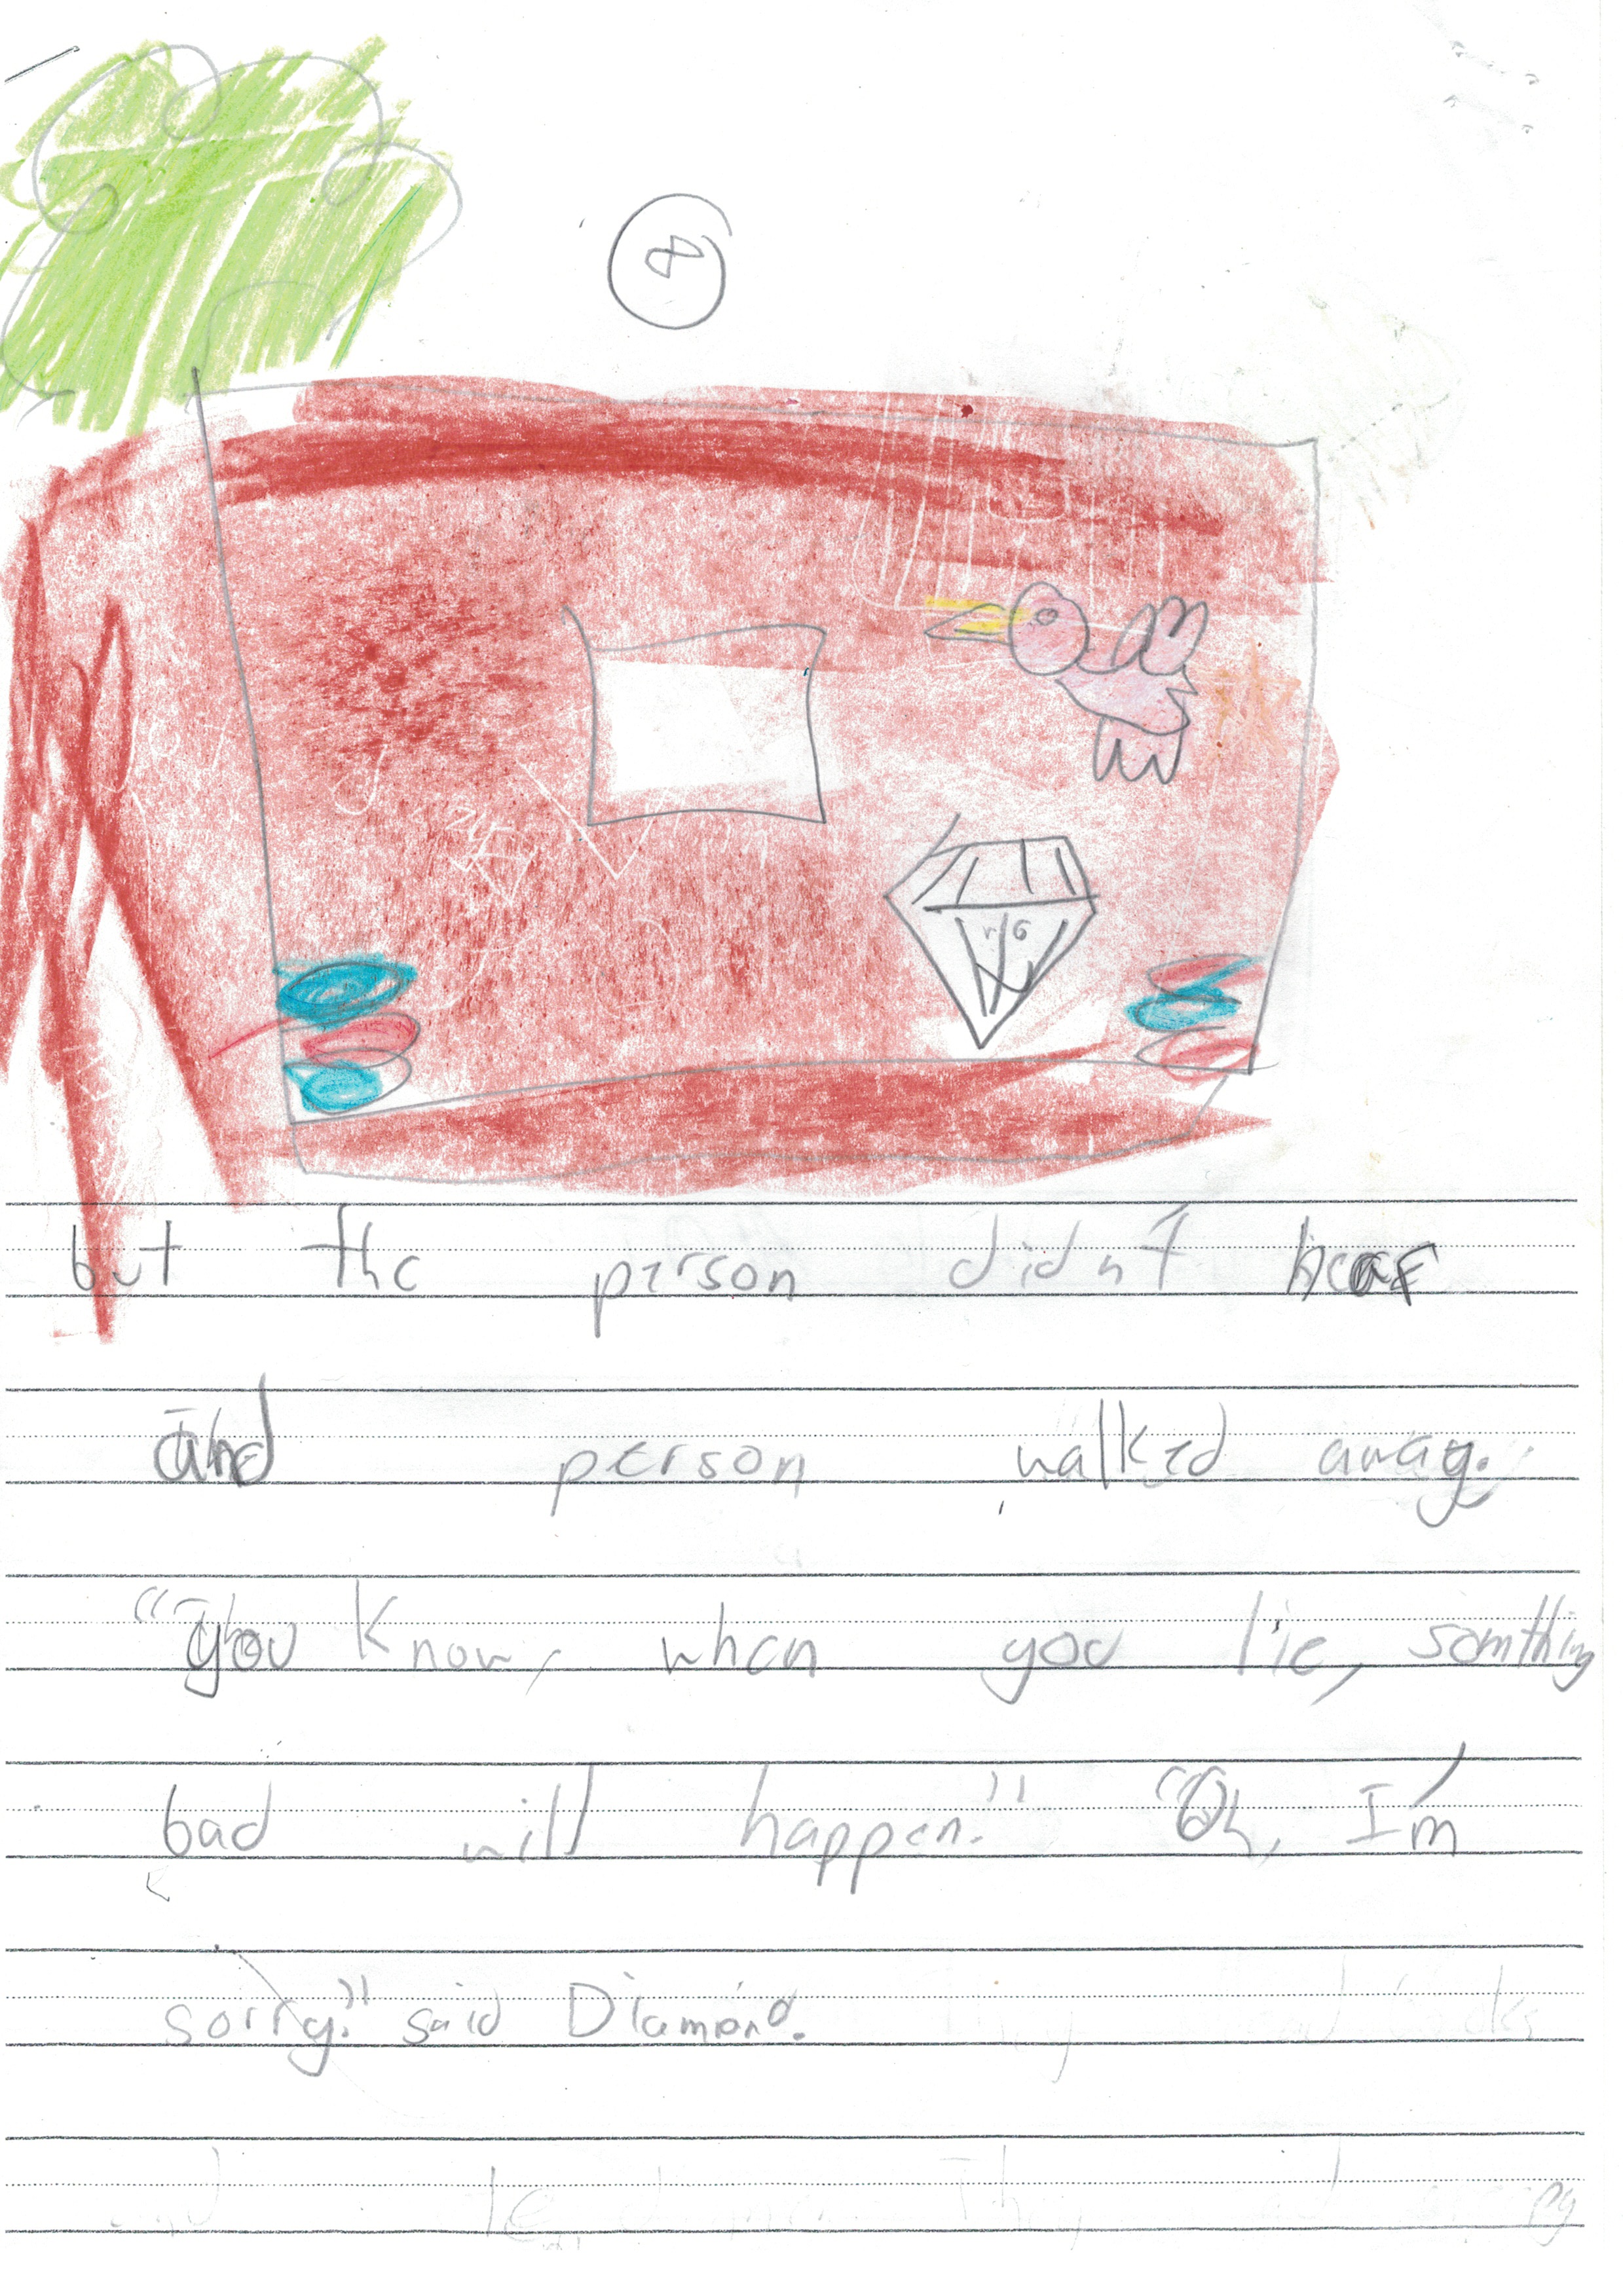 but the person didn't hear
and person walked away.
"you know, when you lie, somthing
bad will happen." "Oh, I'm
sorry." said Diamond.